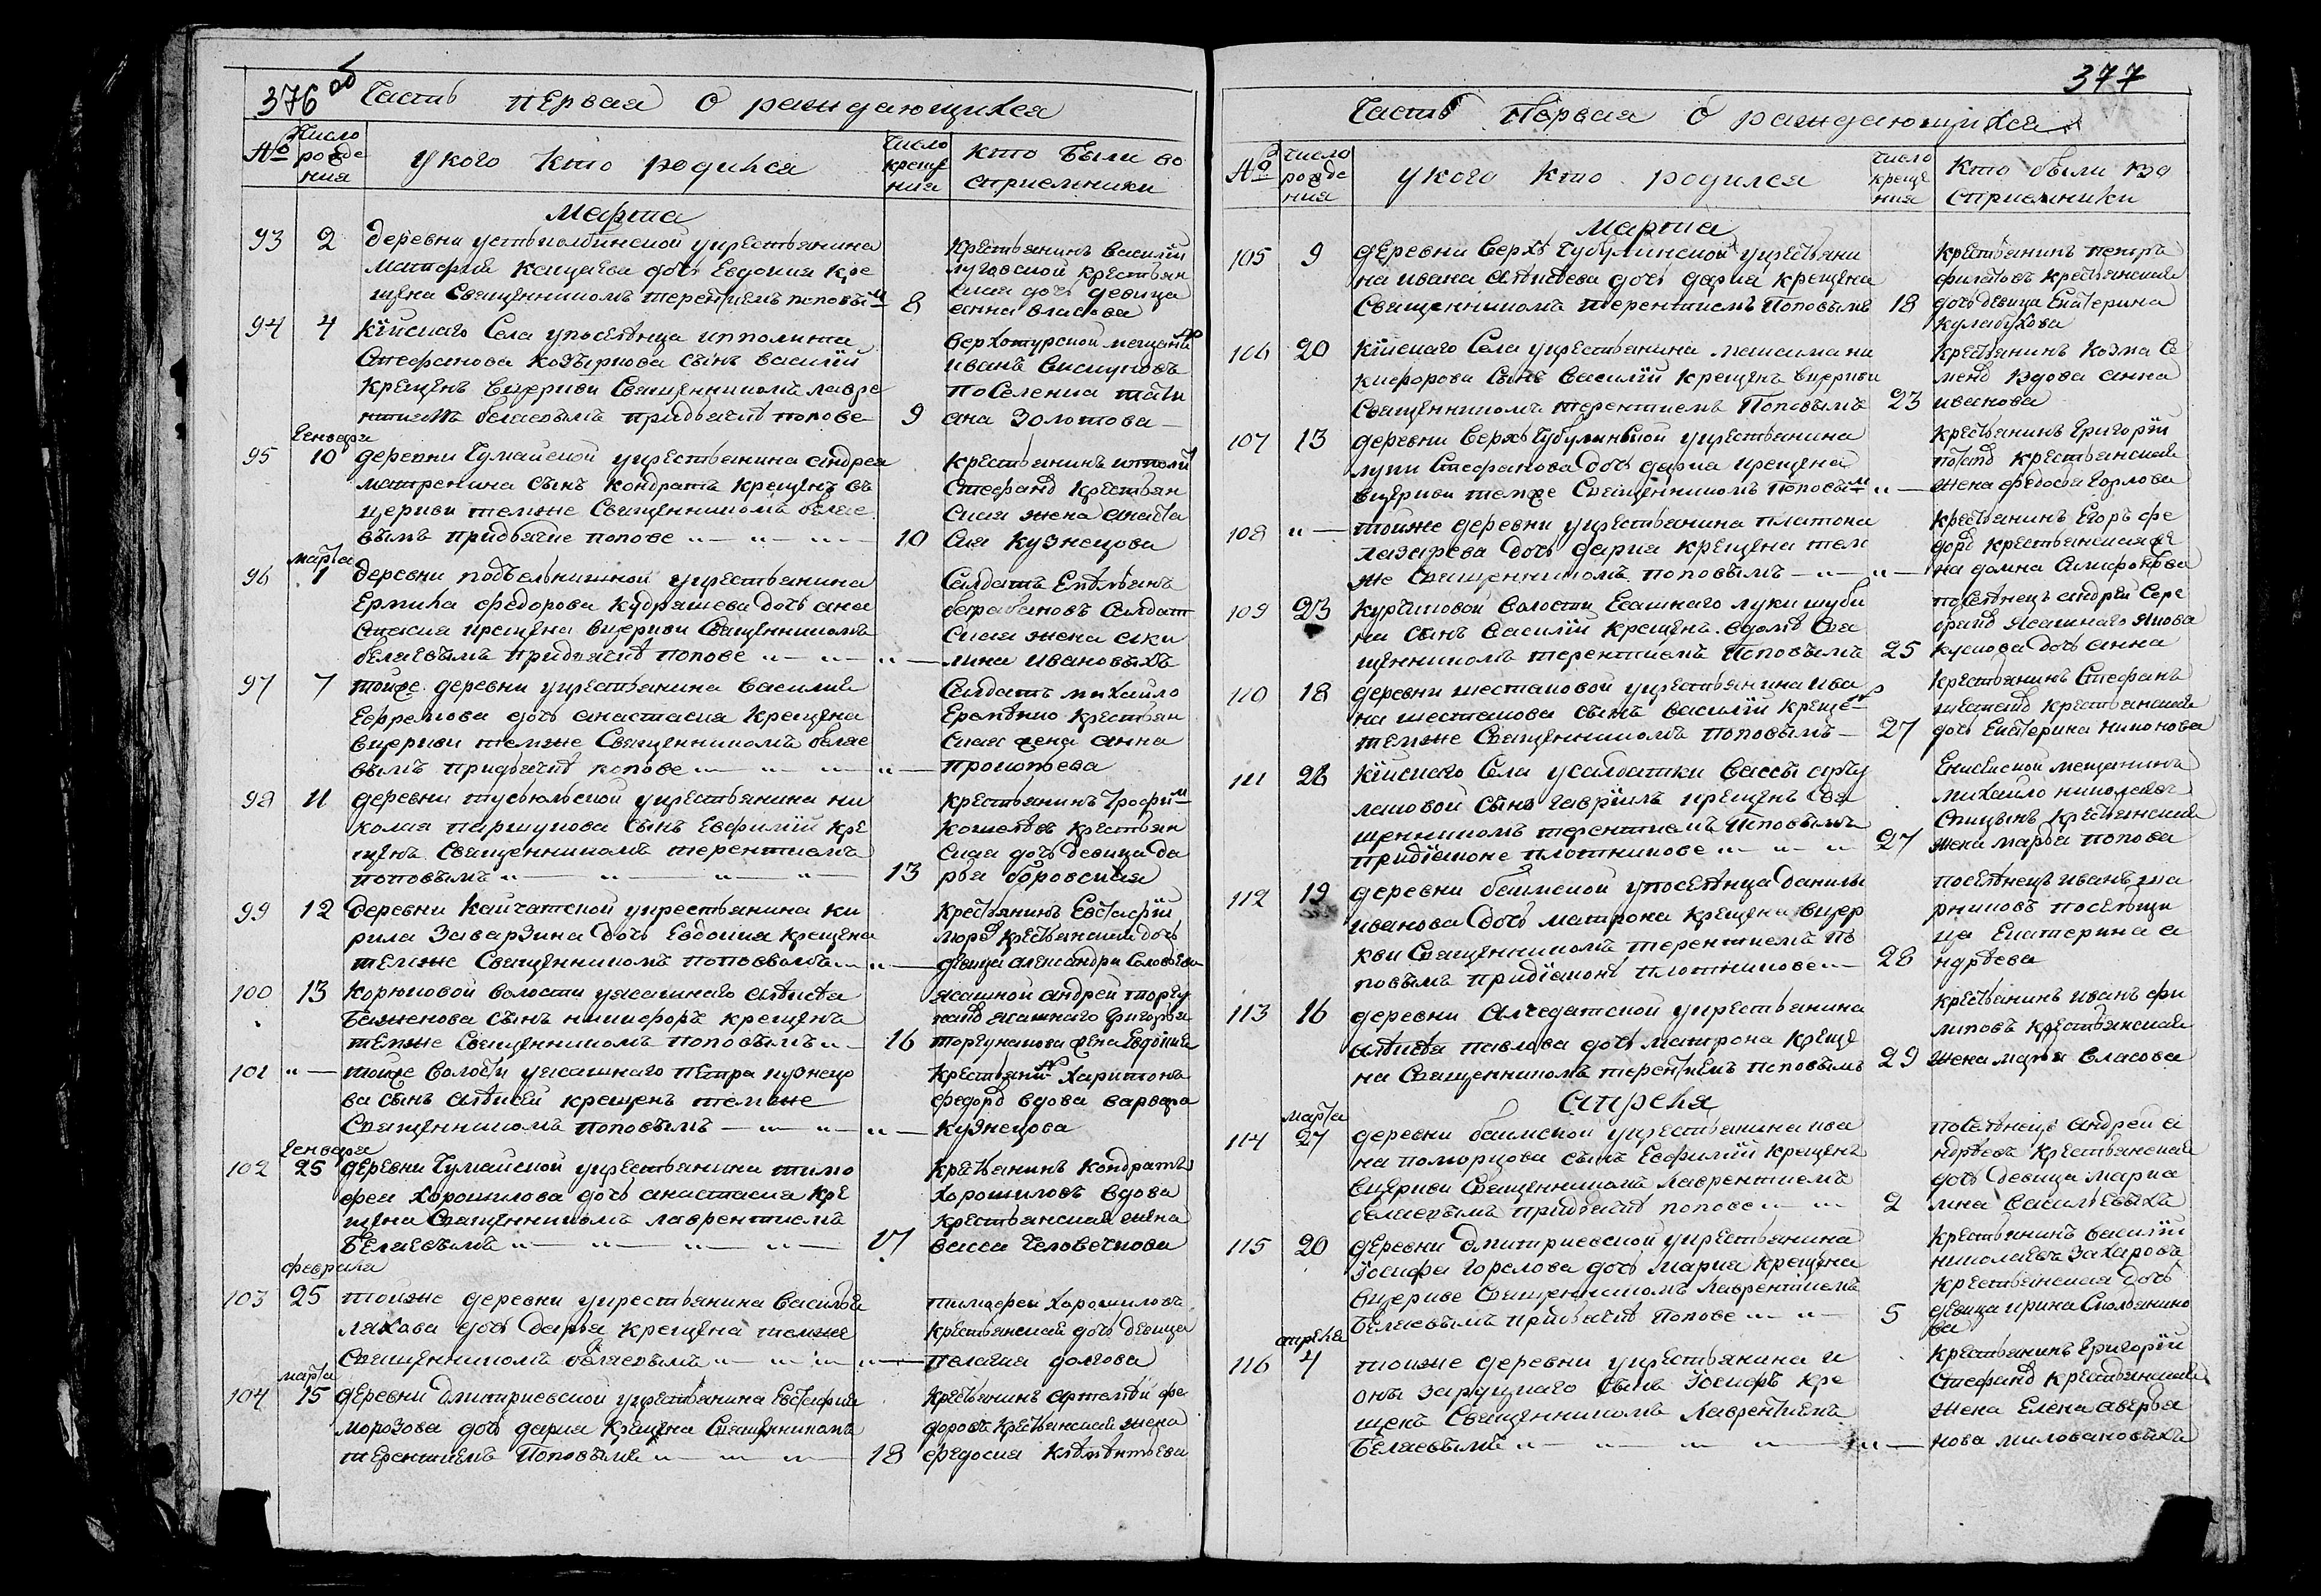 376 об
Часть первая о раждающихся
№ Число рожде ния
У кого кто родился
Число креще ния
Кто были во сприемники
Марта
93 2 деревни устьколбинской укрестьянина
Матфия Кащаева дочь Евдокия кре
щена Священникомъ терентиемъ поповым 8
Крестьянинъ Василий
луговской крестьян
ская дочь девица
анна власова
94 4 Кійскаго Села упоселѣнца ипполита
Стефанова Козыркова сынъ василій
крещенъ вцеркви Священникомъ лавре
нтиемъ беляевымъ придьячкѣ попове 9
верхотурской мещанин
иванъ
поселенка тати
ана Золотова
95 Генваря 10 деревни Чумайской укрестьянина андрея
матренина сынъ Кондратъ крещенъ въ
церкви темже Священникомъ беляе
вымъ придьячке попове 10
крестьянинъ ипполи
Стефанов Крестьян
ская жена анаста
сия Кузнецова
96 марта 1 деревни подъельнишной укрестьянина
Ермила федорова Кудряшева дочь ана
стасия крещена вцеркви Священникомъ
беляевымъ придьячкѣ попове
Салдатъ Емѣльянъ
Салдат
ская жена аки
лина ивановыхъ
97 7 тойже деревни укрестьянина василия
Ефремова дочь анастасия крещена
вцеркви темже Священникомъ беляе
вымъ придьячкѣ попове
Салдатъ михайло
Еремѣнко крестьян
ская жена анна
прокопьева
98 11 деревни тусюльской укрестьянина ни
колая паршукова сынъ Евфимий кре
щенъ Священникомъ терентиемъ
поповымъ 13
крестьянинъ трофим
кошелѣвъ крестьян
ская дочь девица да
рья боровская
99 12 деревни Кайчатской укрестьянина ки
рила Заварзина дочь Евдокия крещена
темже Священникомъ поповымъ
крестьянинъ Евстафий
крестьянская дочь
девица александра Соловьева
100 13 Корюковой волости уясашнаго алѣксѣя
баженова сынъ никифоръ крещенъ
темже Священникомъ поповымъ 16
ясашной андрей торгу
наков ясашнаго григорья
торгунакова жена Евдокия
101 тойже волости уясашнаго петра кузнецо
ва сынъ алѣксей крещенъ темже
Священникомъ поповымъ
крестьянин Харитонъ
федоров вдова варвара
кузнецова
102 Генваря 25 деревни Чумайской укрестьянина тимо
фея Хорошилова дочь анастасия кре
щена Священникомъ лаврентиемъ
беляевымъ 17
крестьянинъ кондратъ
Хорошиловъ вдова
крестьянская жена
васса Человечкова
103 февраля 25 тойже деревни укрестьянина василья
ляхова дочь дарья крещена темже
Священникомъ беляевымъ
тимофей Хорошиловъ
крестьянская дочь девица
пелагия долгова
104 марта 15 деревни дмитриевской укрестьянина Евстафия
морозова дочь дария крещена Священникомъ
терентиемъ Поповымъ 18
крестьянинъ артемѣй фе
доровъ крестьянская жена
федосия клѣмѣнтьева
377
Часть первая о раждающихся
№ Число рожде ния
У кого кто родился
число креще ния
Кто были во сприемники
марта
105 9 деревни Верхъ Чубулинской укрестьяни
на ивана алѣксѣева дочь дария крещена
Священникомъ терентиемъ Поповымъ 18
крестьянинъ петръ
филатовъ крестьянская
дочь девица Екатерина
кулабухова
106 20 Кійскаго Села укрестьянина максима ни
кифорова сынъ василий крещенъ вцеркви
Священникомъ терентиемъ Поповымъ 23
крестьянинъ козма Се
менов вдова анна
иванова
107 13 деревни верхъ Чубулинской укрестьянина
луки Стефанова дочь дария крещена
вцеркви темже Священникомъ поповым
крестьянинъ григорій
потапов крестьянская
жена федосья Горлова
108 тойже деревни укрестьянина платона
лазарева дочь дария крещена тем
же Священникомъ поповымъ
крестьянинъ Егоръ фе
доров крестьянская же
на домна
109 23 Курчиковой волости Ясашнаго луки шуби
на сынъ василій крещенъ вдомѣ Свя
щенникомъ терентиемъ Поповымъ 25
поселѣнецъ андрей Сере
бряков ясашнаго якова
кускова дочь анна
110 18 деревни шестаковой укрестьянина ива
на шестакова сынъ василій креще
темже Священникомъ Поповымъ 27
крестьянинъ Стефанъ
шестаков крестьянская
дочь Екатерина никонова
111 26 Кійскаго Села усалдатки вассы
лашовой сынъ гавріилъ крещенъ Свя
щенникомъ терентиемъ Поповымъ
придіаконе плотникове 27
Енисейской мещанинъ
михайло николаевъ
Спицынъ крестьянская
жена марья попова
112 19 деревни баимской упоселѣнца данилы
иванова дочь матрона крещена вцер
кви Священникомъ терентиемъ по
повымъ придіаконѣ плотникове 28
поселѣнецъ иванъ ша
рниковъ поселенщи
ца Екатерина а
ндрѣева
113 16 деревни Алчедатской укрестьянина
алѣксѣя павлова дочь матрона креще
на Священникомъ терентиемъ поповымъ 29
крестьянинъ иванъ фи
липовъ крестьянская
жена марья власова
апреля
114 марта 27 деревни баимской укрестьянина ива
на поморцова сынъ Евфимий крещенъ
вцеркви Священникомъ лаврентиемъ
беляевымъ придьячкѣ попове 2
поселѣнецъ андрей а
ндрѣевъ крестьянская
дочь девица мариа
мна васильевыхъ
115 20 деревни дмитриевской укрестьянина
Іосифа Горелова дочь мария крещена
вцеркве Священникомъ лаврентиемъ
беляевымъ придьячкѣ Попове 5
крестьянинъ василій
николаевъ Захаровъ
крестьянская дочь
девица ирина Смолянино
ва
116 апреля 4 тойже деревни укрестьянина и
оны Заруцкаго сынъ Іосифъ кре
щенъ Священникомъ лаврентиемъ
беляевымъ
крестьянинъ григорій
Стефанов крестьянская
жена Елена аверья
нова миловановыхъ